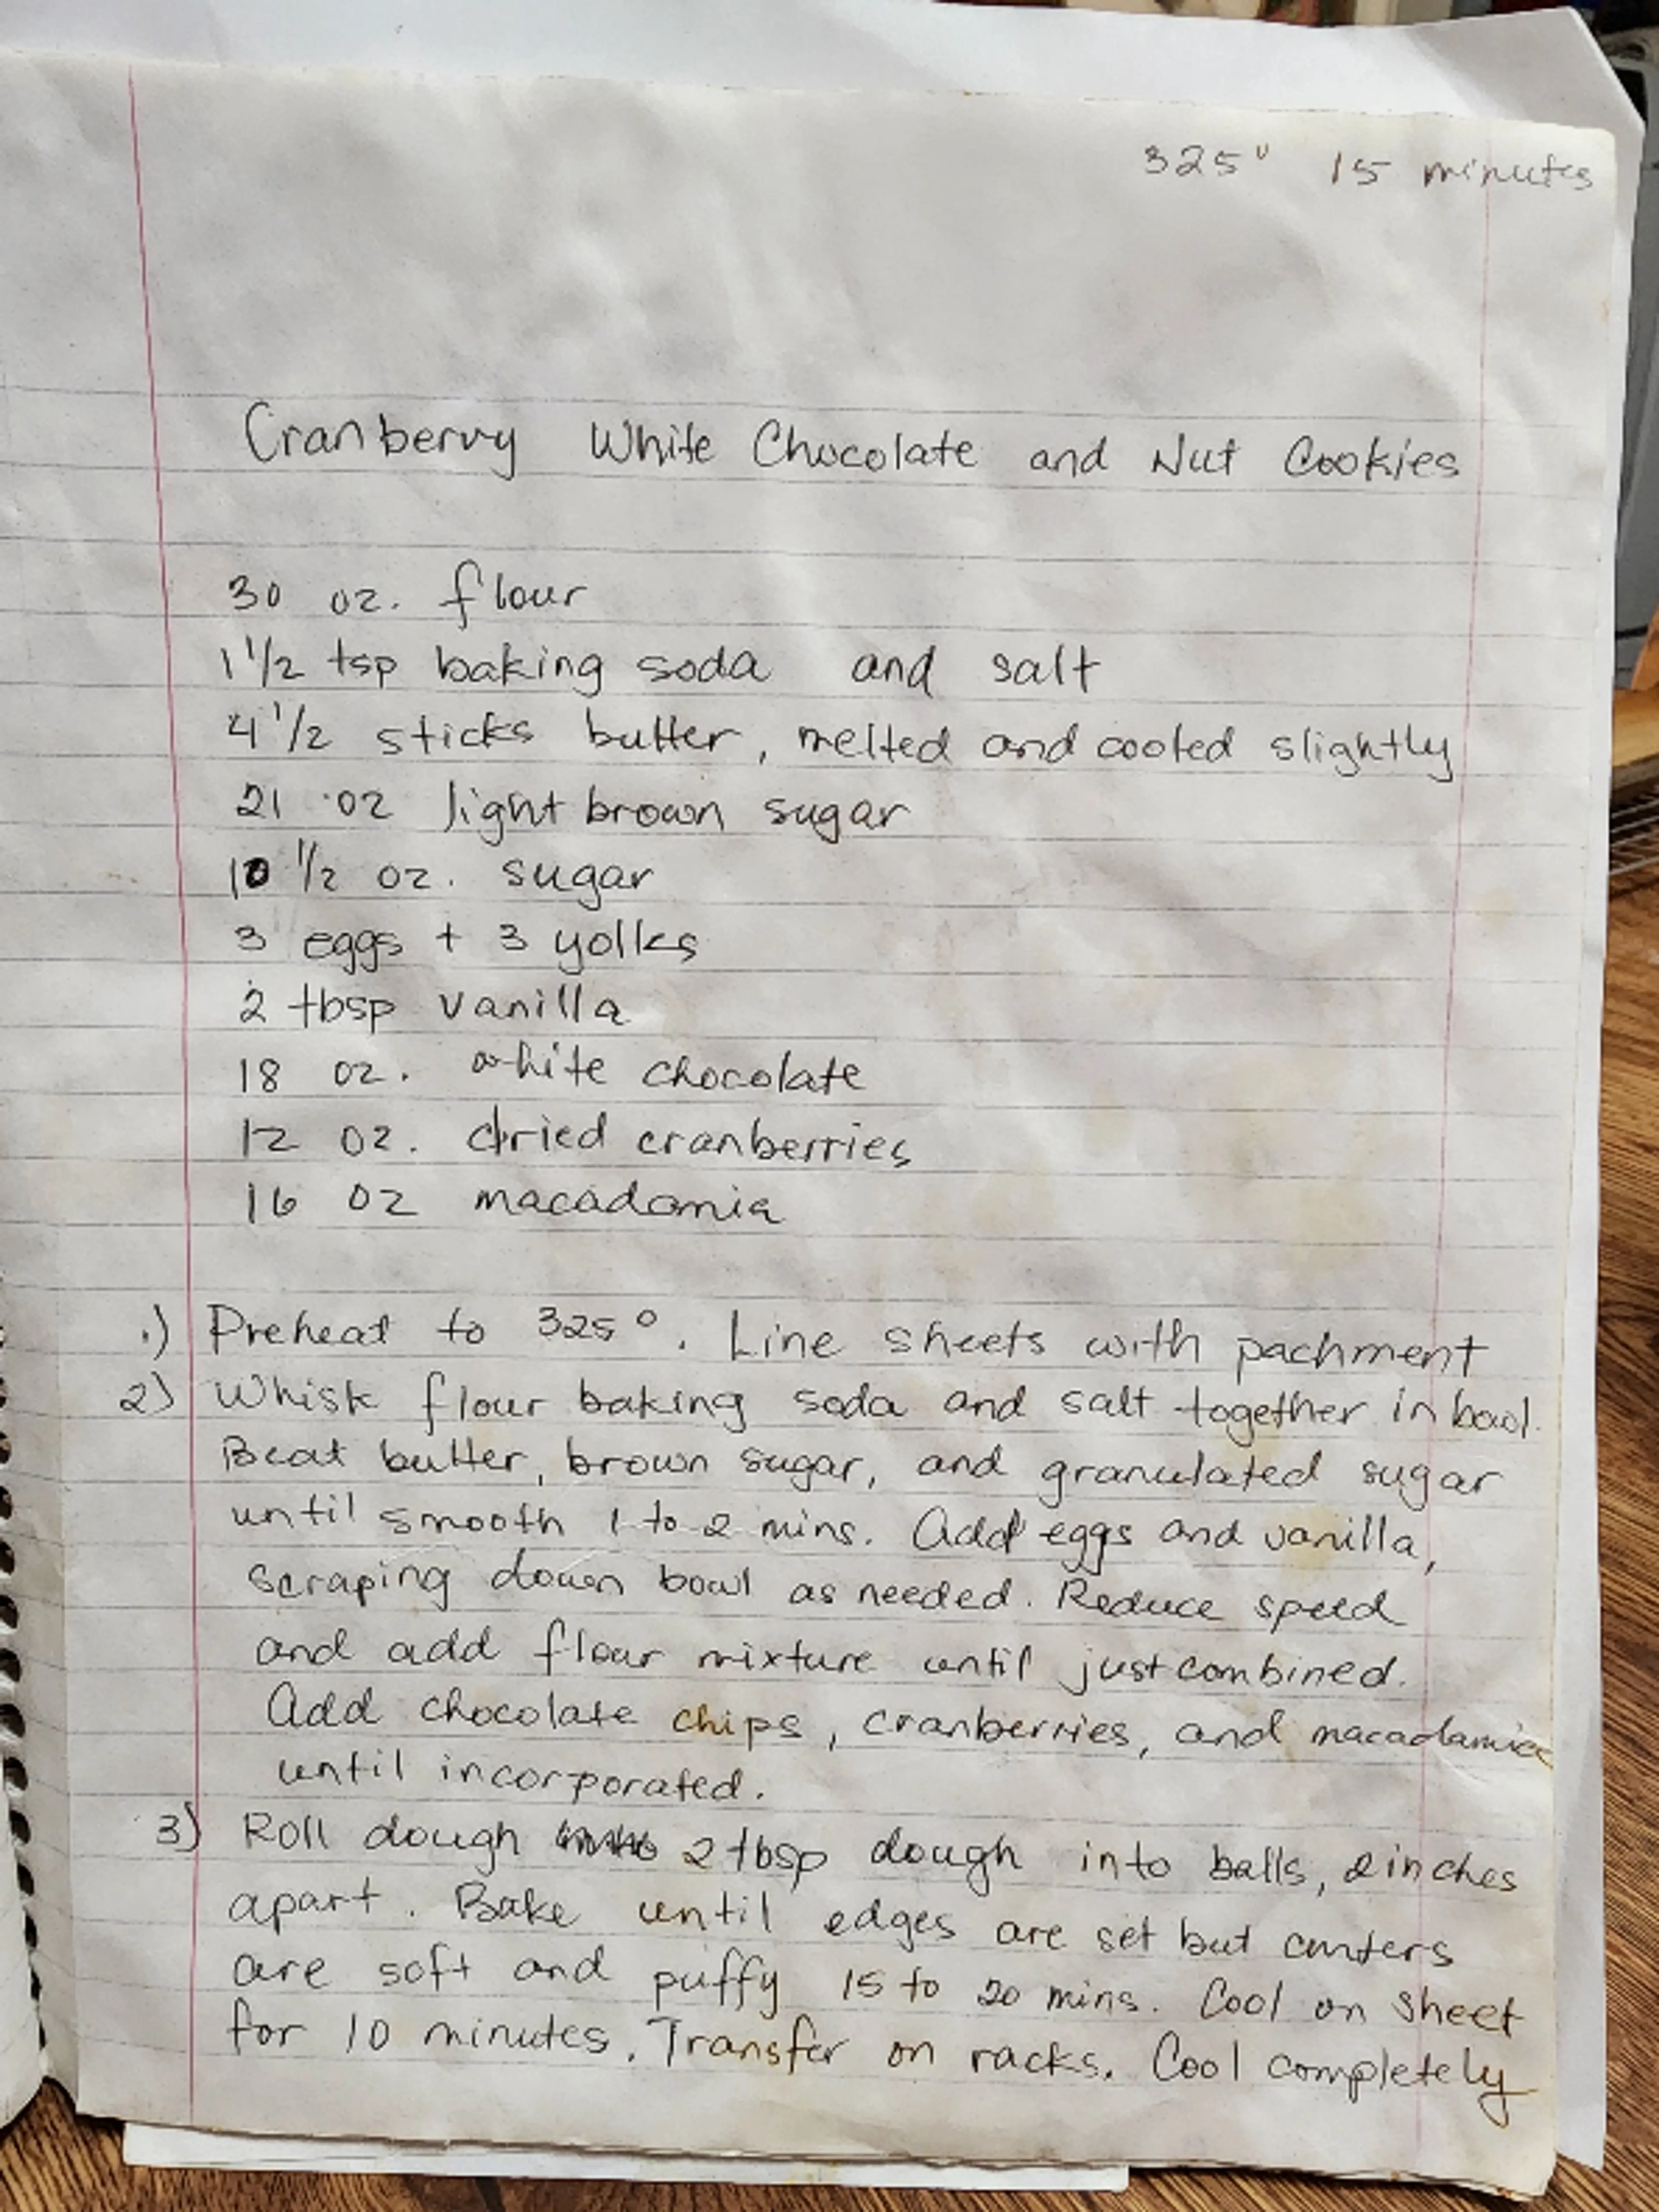 325° 15 minutes
Cranberry White Chocolate and Nut Cookies
30 oz. flour
1 1/2 tsp baking soda and salt
4 1/2 sticks butter, melted and cooled slightly
21 oz light brown sugar
10 1/2 oz. sugar
3 eggs + 3 yolks
2 tbsp vanilla
18 oz. white chocolate
12 oz. dried cranberries
16 oz macadamia
1) Preheat to 325°. Line sheets with pachment
2) Whisk flour baking soda and salt together in bowl.
Beat butter, brown sugar, and granulated sugar
until smooth 1 to 2 mins. Add eggs and vanilla,
scraping down bowl as needed. Reduce speed
and add flour mixture until just combined.
Add chocolate chips, cranberries, and macadamias
until incorporated.
3) Roll dough 2 tbsp dough into balls, 2 inches
apart. Bake until edges are set but centers
are soft and puffy 15 to 20 mins. Cool on sheet
for 10 minutes. Transfer on racks. Cool completely